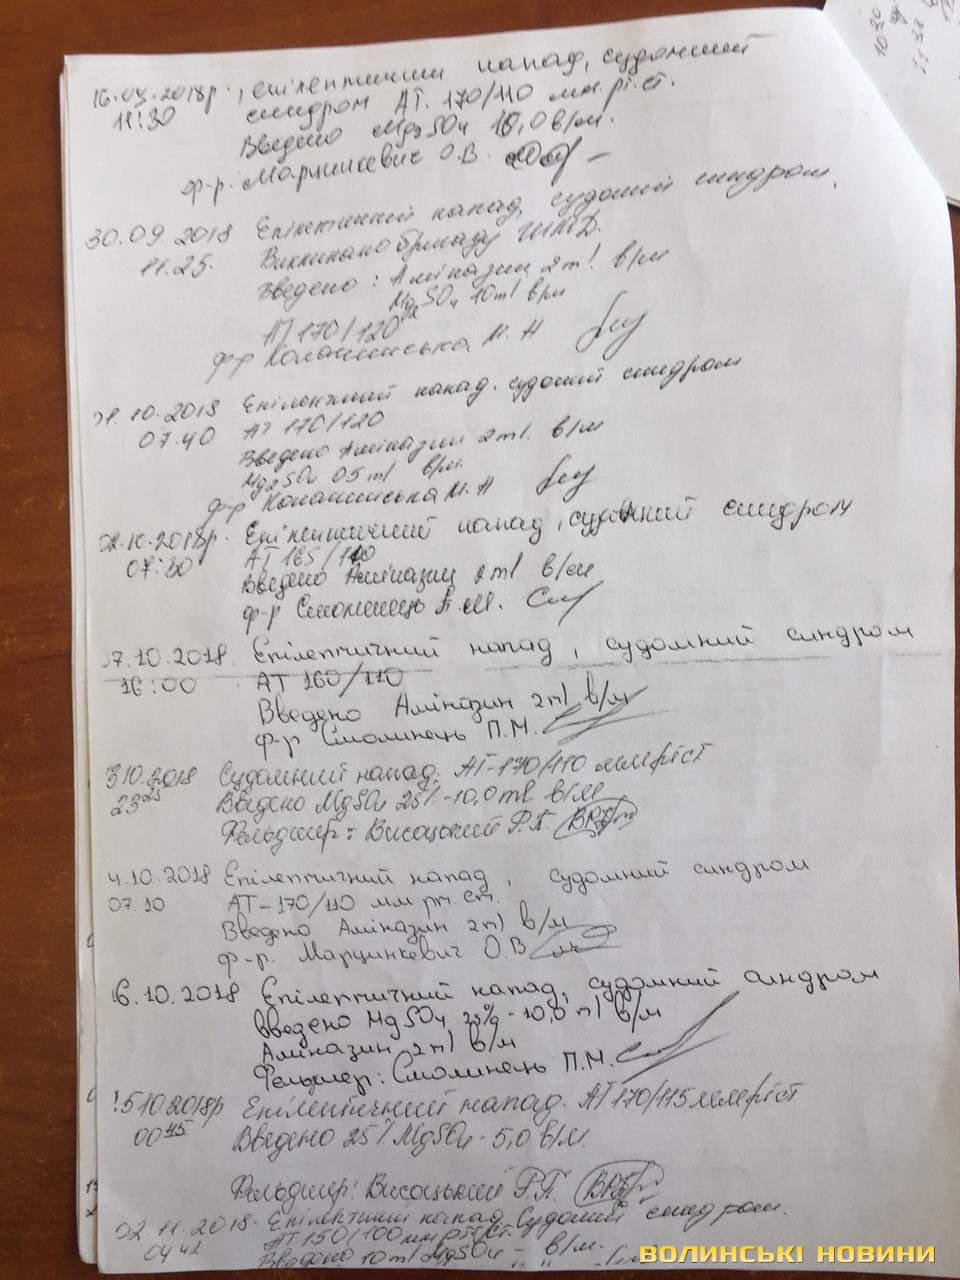 16.09.2018р., епілептичний напад, судомний
11:30 синдром АТ. 170/110 мм.рт.ст.
Введено MgSO4 10,0 в/м.
ф-р. Марцинкевич О.В.
30.09.2018 Епілептичний напад, судомий синдром.
11.25. Викликано бригаду ШМД.
Введено: Аміназин 2ml. в/м
Mg2SO4 10ml в/м
АТ 170/120
ф-р М. Н
.10.2018 Епілептичний напад. судомий синдром
07.40 АТ 170/120
Введено Аміназин 2ml. в/м
Mg2SO4 05ml в/м.
ф-р М. Н
02.10.2018р. Епілептичний напад, судомний синдром
07:30 АТ 165/110
Введено Аміназин 2ml в/м
ф-р Смолинець П.М.
07.10.2018. Епілептичний напад, судомний синдром
16:00 АТ 160/110
Введено Аміназин 2ml в/м
Ф-р Смолинець П.М.
10.2018 Судомний напад. АТ-170/110 мм рт ст
23 25 Введено MgSO4 25% -10,0 ml в/м
Фельдшер: Висоцький Р.П.
4.10.2018 Епілептичний напад, судомний синдром
07.10 АТ-170/110 мм рт. ст.
Введено Аміназин 2ml в/м
Ф-р. Марцинкевич О.В
6.10.2018 Епілептичний напад, судомний синдром
Введено MgSO4 25% -10,0 ml в/м
Аміназин 2ml в/м
Фельдшер: Смолинець П.М.
5102018р Епілептичний напад. АТ 170/115 мм рт ст
00 45 Введено 25% MgSO4 - 5,0 в/м.
Фельдшер: Висоцький Р.П.
02.11.2018. Епілективний напад. Судомий синдром.
04 42 АТ 150/100 мм рт ст.
Введено 10ml MgSO4 - в/м.
ВОЛИНСЬКІ НОВИНИ